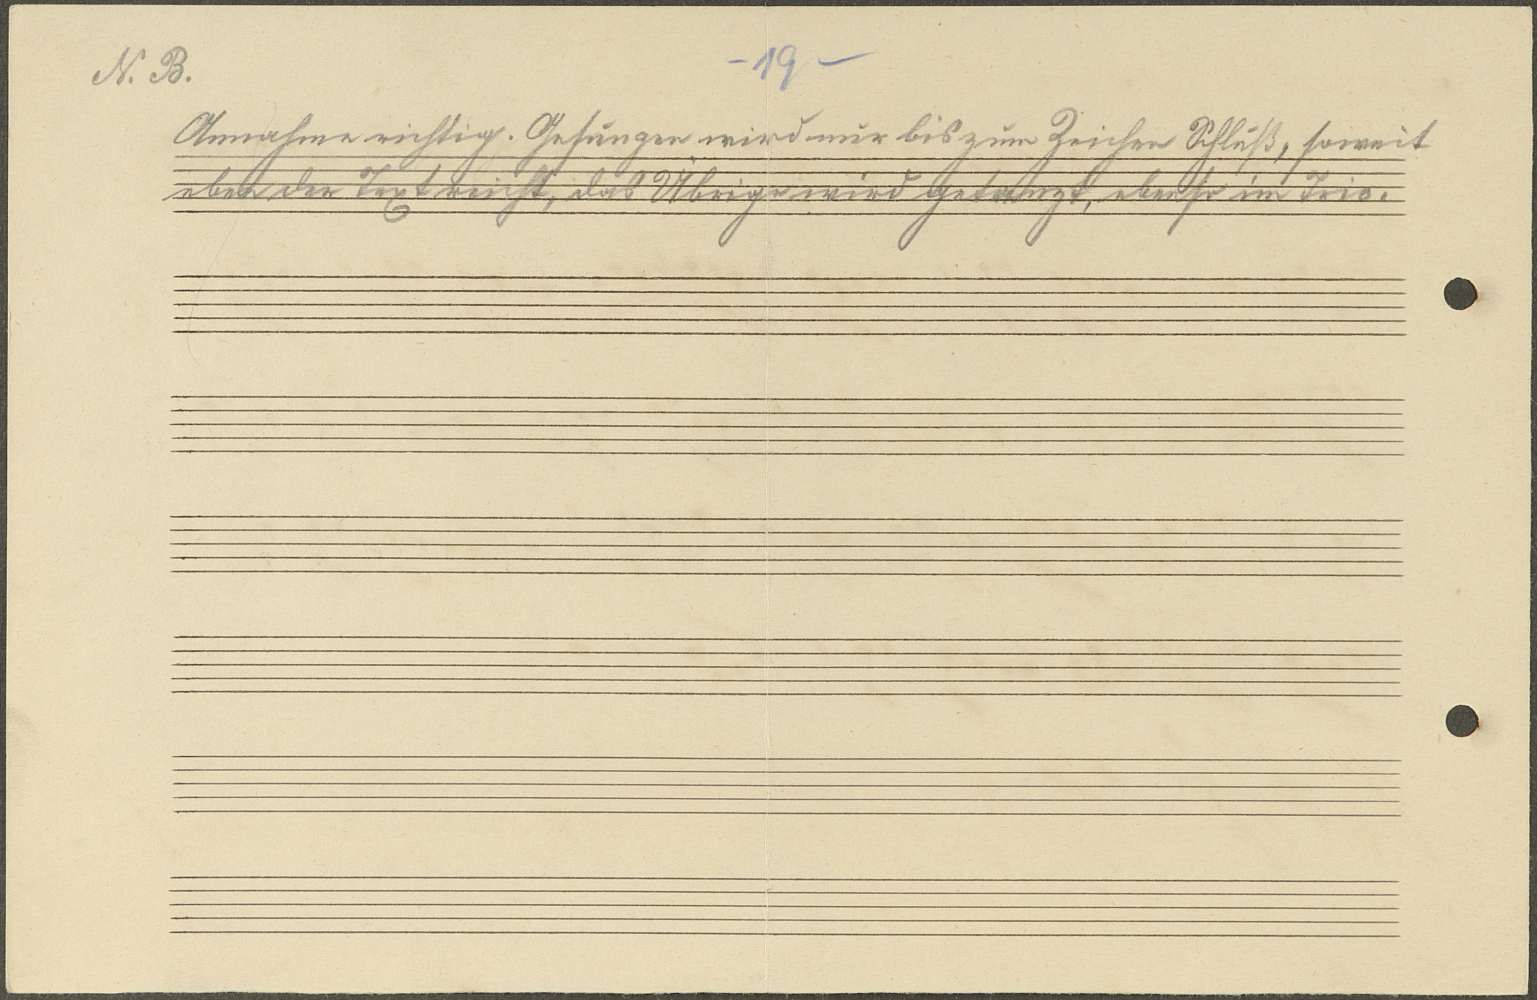 N. B.
-19-
Annahme richtig. Gesungen wird nur bis zum Zeichen Schluß, soweit
eben der Text reicht, das Übrige wird getanzt, ebenso im Trio.